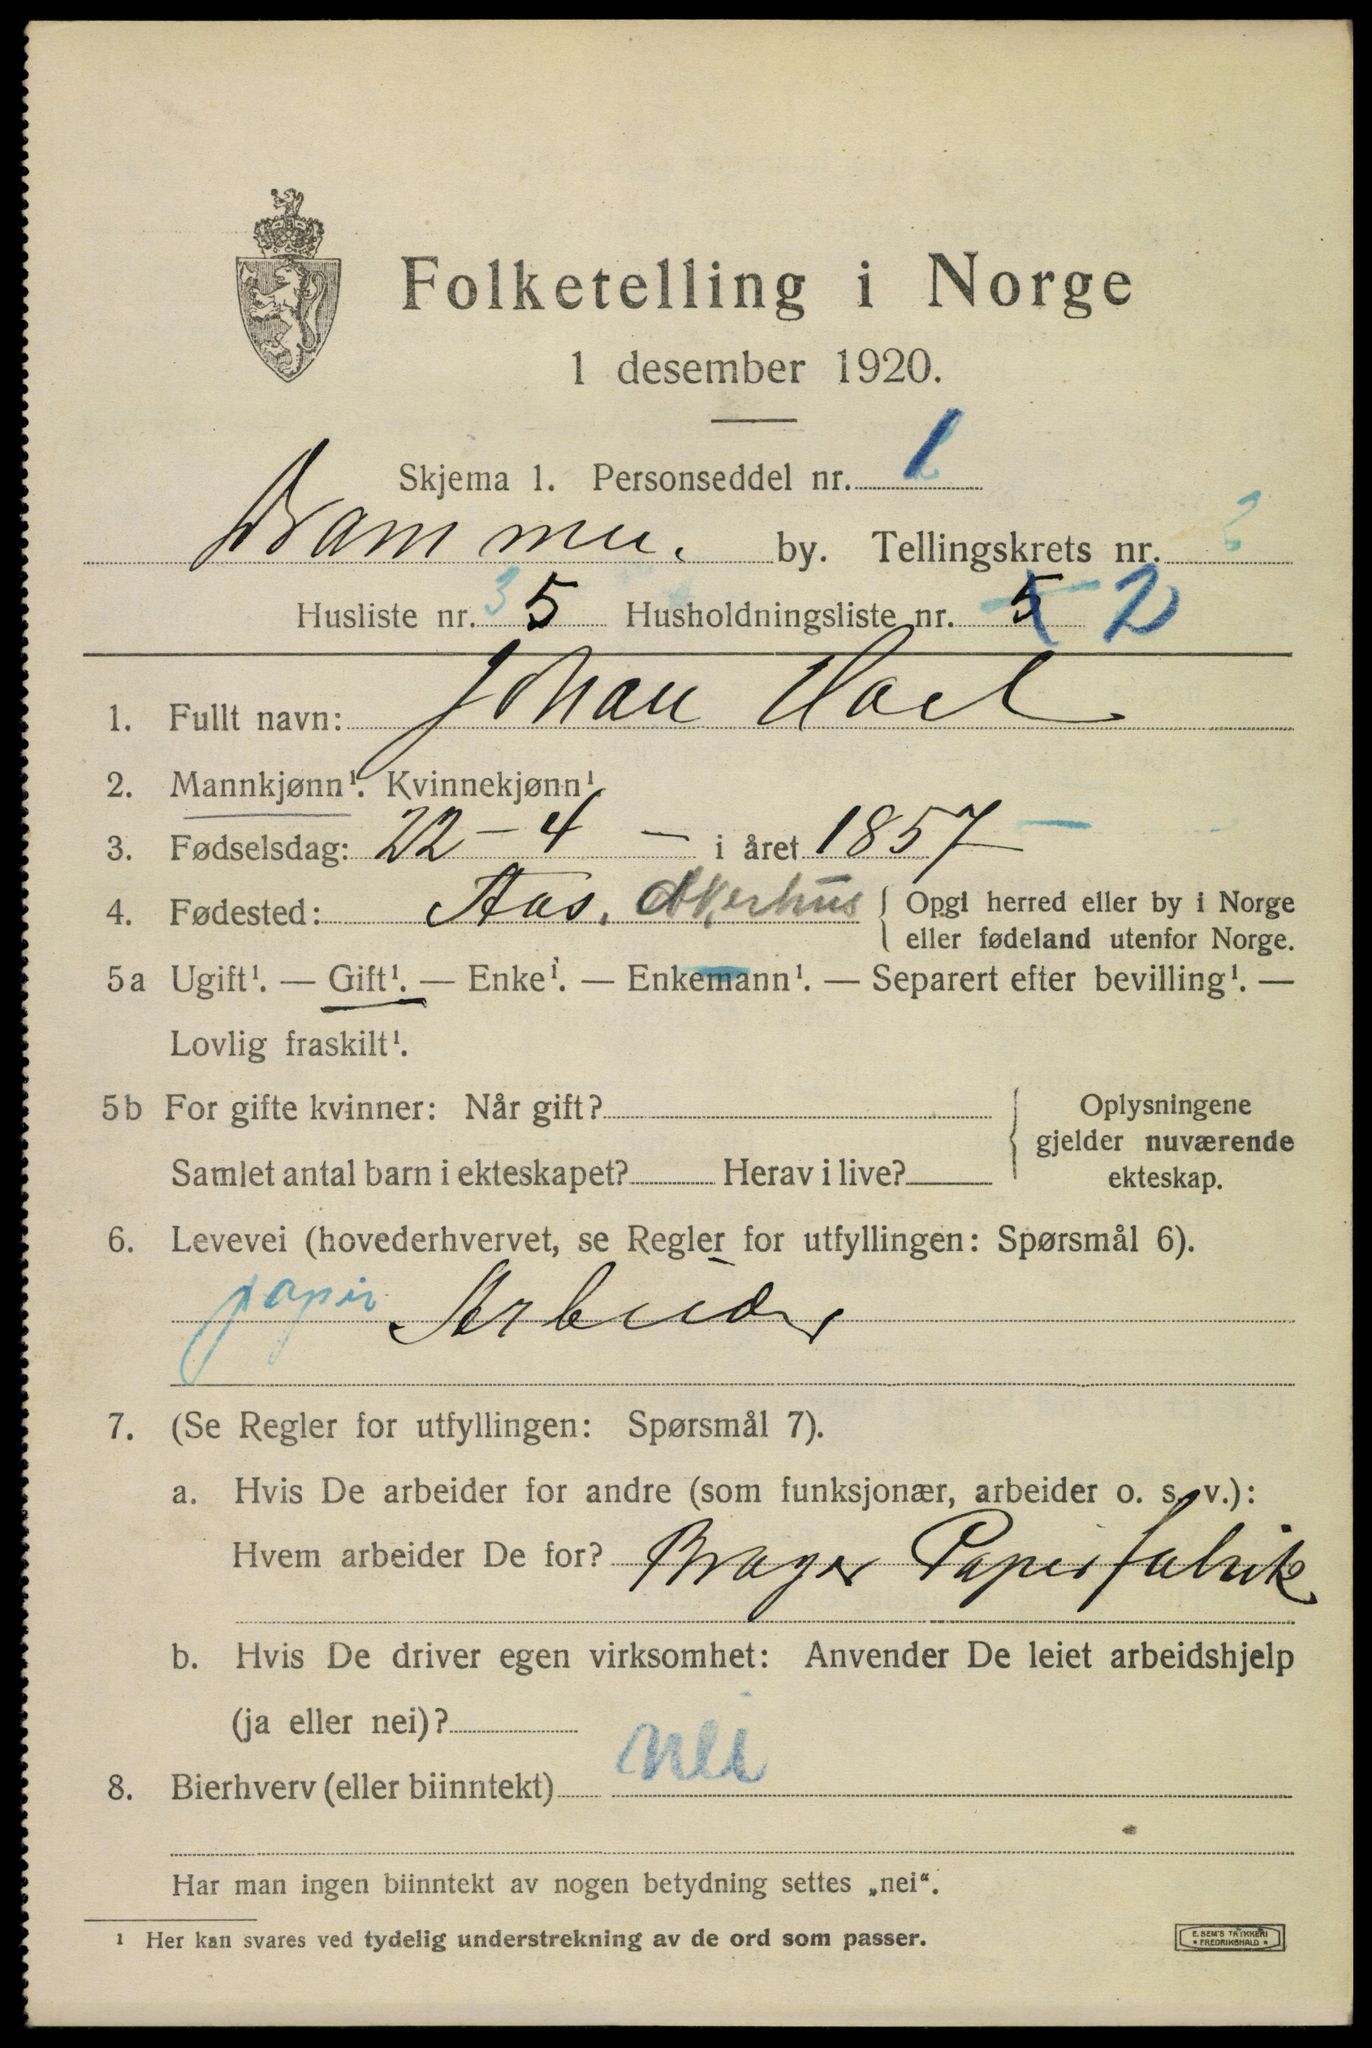 Folketelling i Norge
1 desember 1920.
Skjema 1. Personseddel nr. 1
Drammen. by. Tellingskrets nr. 2
Husliste nr. 3 5 Husholdningsliste nr. 5 2
1. Fullt navn: Johan Hoel
2. Mannkjønn¹. Kvinnekjønn¹.
3. Fødselsdag: 22 - 4 - i året 1857
4. Fødested: Aas, Akerhus { Opgi herred eller by i Norge
eller fødeland utenfor Norge.
5a Ugift¹. — Gift¹. — Enke¹. — Enkemann¹. — Separert efter bevilling¹. —
Lovlig fraskilt¹.
5b For gifte kvinner: Når gift? { Oplysningene
gjelder nuværende
Samlet antal barn i ekteskapet? Herav i live? ekteskap.
6. Levevei (hovederhvervet, se Regler for utfyllingen: Spørsmål 6).
papir Arbeider
7. (Se Regler for utfyllingen: Spørsmål 7).
a. Hvis De arbeider for andre (som funksjonær, arbeider o. s. v.):
Hvem arbeider De for? Brager Papirfabrik
b. Hvis De driver egen virksomhet: Anvender De leiet arbeidshjelp
(ja eller nei)?
8. Bierhverv (eller biinntekt) nei
Har man ingen biinntekt av nogen betydning settes „nei“.
¹ Her kan svares ved tydelig understrekning av de ord som passer.
E. SEM'S TRYKKERI
* FREDRIKSHALD *